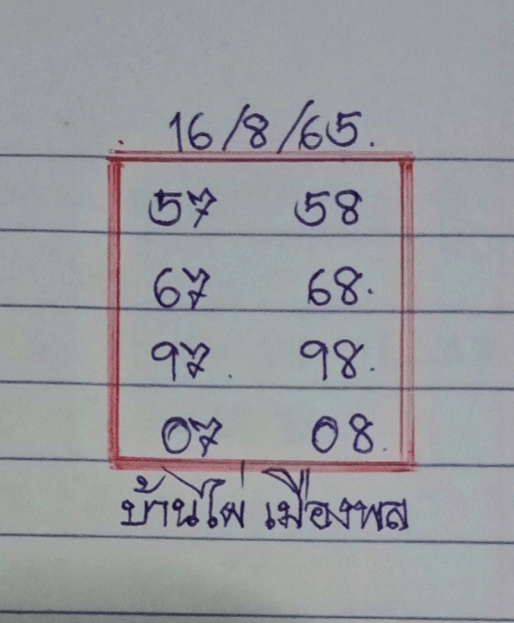 16/8/65.
57 58
67 68.
97. 98.
07 08.
บ้านไผ่ เมืองพล